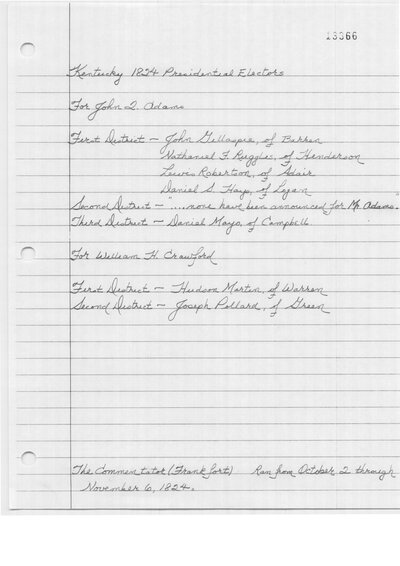 13366
Kentucky 1824 Presidential Electors
For John Q. Adams
First District — John Gillaspie, of Barren
Nathaniel F. Ruggles, of Henderson
Lewis Robertson, of Adair
Daniel S. Hays, of Logan
Second District — "....none have been announced for Mr. Adams."
Third District — Daniel Mayo, of Campbell
For William H. Crawford
First District — Hudson Martin, of Warren
Second District — Joseph Pollard, of Green
The Commentator (Frankfort) Ran from October 2 through
November 6, 1824.